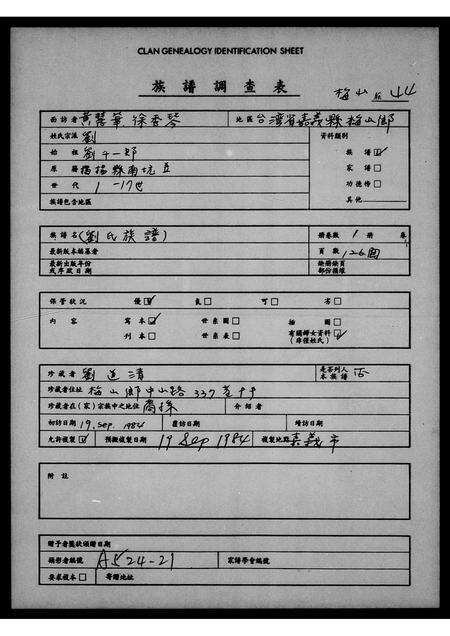 CLAN GENEALOGY IDENTIFICATION SHEET
族譜調查表
梅山 No 44
面訪者 黃慧華 徐香琴 地區 台灣省嘉義縣梅山鄉
姓氏宗派 劉 資料類別
始祖 劉千一郎 族譜☑
原籍 縣南坑 家譜□
世代 1-17世 功德榜□
族譜包含地區 其他
族譜名 (劉氏族譜) 冊卷數 1 冊 卷
最新版本編纂者 頁數 126面
最新出版年份或序跋日期 缺冊缺頁部份損壞
保管狀況 優☑ 良□ 可□ 劣□
內容 寫本☑ 世系圖□ 插圖□
刊本□ 世系表□ 有關婦女資料☑ (非僅姓氏)
珍藏者 劉道清 是否列入本族譜 否
珍藏者住址 梅山鄉中山路337
珍藏者在(家)宗族中之地位 裔孫 介紹者
初訪日期 19. Sep. 1984 覆訪日期 續訪日期
允許複製☑ 預擬複製日期 19 Sep 1984 複製地點 嘉義市
附註
贈予者圖狀頒贈日期
攝影者編號 A524-21 家譜學會編號
要求複本□ 寄贈地址